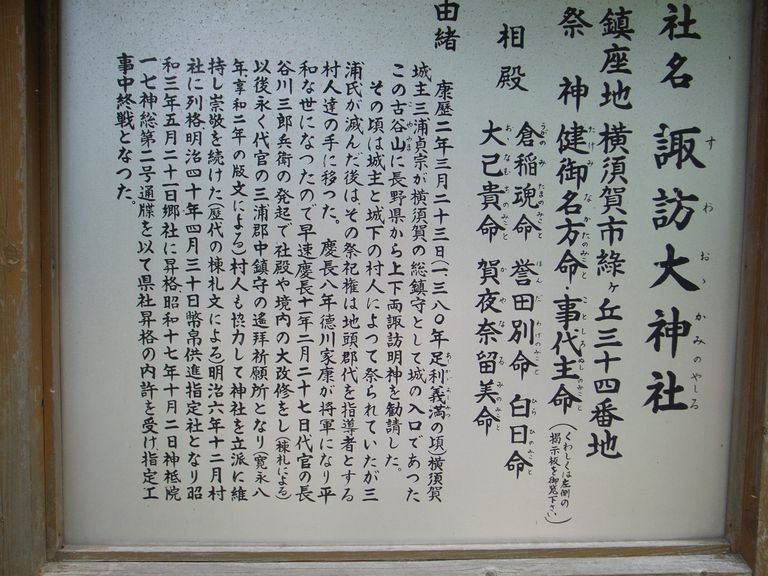 社名 諏訪大神社
すわおゝかみのやしろ
鎮座地 横須賀市緑ヶ丘三十四番地
祭神 健御名方命・事代主命
たけみなかたのみこと ことしろぬしのみこと
(くわしくは左側の
掲示板を御覧下さい)
相殿
倉稲魂命 誉田別命 白日命
うがのみたまのみこと ほんだわけのみこと しらひのみこと
大己貴命 賀夜奈留美命
おなむちのみこと かやなるみのみこと
由緒
康歴二年三月二十三日(一三八〇年足利義満の頃)横須賀
城主三浦貞宗が横須賀の総鎮守として城の入口であつた
この古谷山に長野県から上下両諏訪明神を勧請した。
その頃は城主と城下の村人によつて祭られていたが三
浦氏が滅んだ後はその祭祀権は地頭郡代を指導者とする
村人達の手に移つた。慶長八年徳川家康が将軍になり平
和な世になつたので早速慶長十一年二月二十七日代官の長
谷川三郎兵衛の発起で社殿や境内の大改修をし(棟札による)
以後永く代官の三浦郡中鎮守の遙拜祈願所となり(寛永八
年、享和二年の版文による)村人も協力して神社を立派に維
持し崇敬を続けた(歴代の棟札文による)明治六年十二月村
社に列格明治四十年四月三十日幣帛供進指定社となり昭
和三年五月二十一日郷社に昇格昭和十七年十月二日神祇院
一七神総第二号通牒を以て県社昇格の内許を受け指定工
事中終戦となつた。